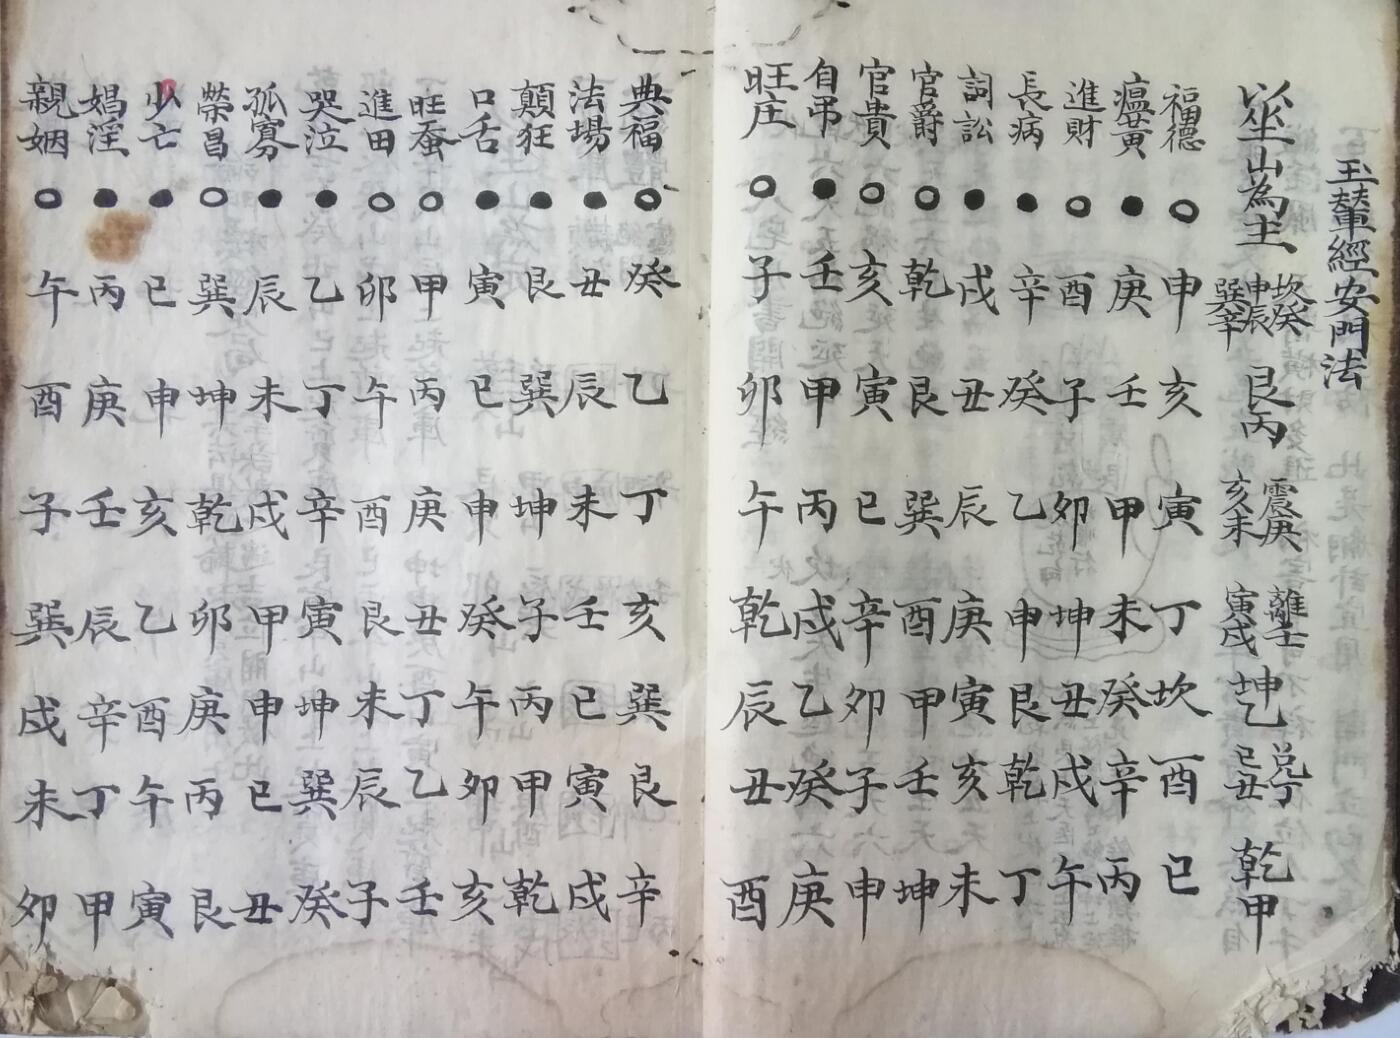 玉輦經安門法
以坐山為主 坎癸申辰巽辛 艮丙 震庚亥未 離壬寅戌 坤乙 兌丁巳丑 乾甲
福德 ○ 申 亥 寅 丁 坎 酉 巳
瘟黃 ● 庚 壬 甲 未 癸 辛 丙
進財 ○ 酉 子 卯 坤 丑 戌 午
長病 ● 辛 癸 乙 申 艮 乾 丁
詞訟 ● 戌 丑 辰 庚 寅 亥 未
官爵 ○ 乾 艮 巽 酉 甲 壬 坤
官貴 ○ 亥 寅 巳 辛 卯 子 申
自吊 ● 壬 甲 丙 戌 乙 癸 庚
旺庄 ○ 子 卯 午 乾 辰 丑 酉
典福 ○ 癸 乙 丁 亥 巽 艮 辛
法場 ● 丑 辰 未 壬 巳 寅 戌
顛狂 ● 艮 巽 坤 子 丙 甲 乾
口舌 ● 寅 巳 申 癸 午 卯 亥
旺蚕 ○ 甲 丙 庚 丑 丁 乙 壬
進田 ○ 卯 午 酉 艮 未 辰 子
哭泣 ● 乙 丁 辛 寅 坤 巽 癸
孤寡 ● 辰 未 戌 甲 申 巳 丑
榮昌 ○ 巽 坤 乾 卯 庚 丙 艮
少亡 ● 巳 申 亥 乙 酉 午 寅
娼淫 ● 丙 庚 壬 辰 辛 丁 甲
親姻 ○ 午 酉 子 巽 戌 未 卯